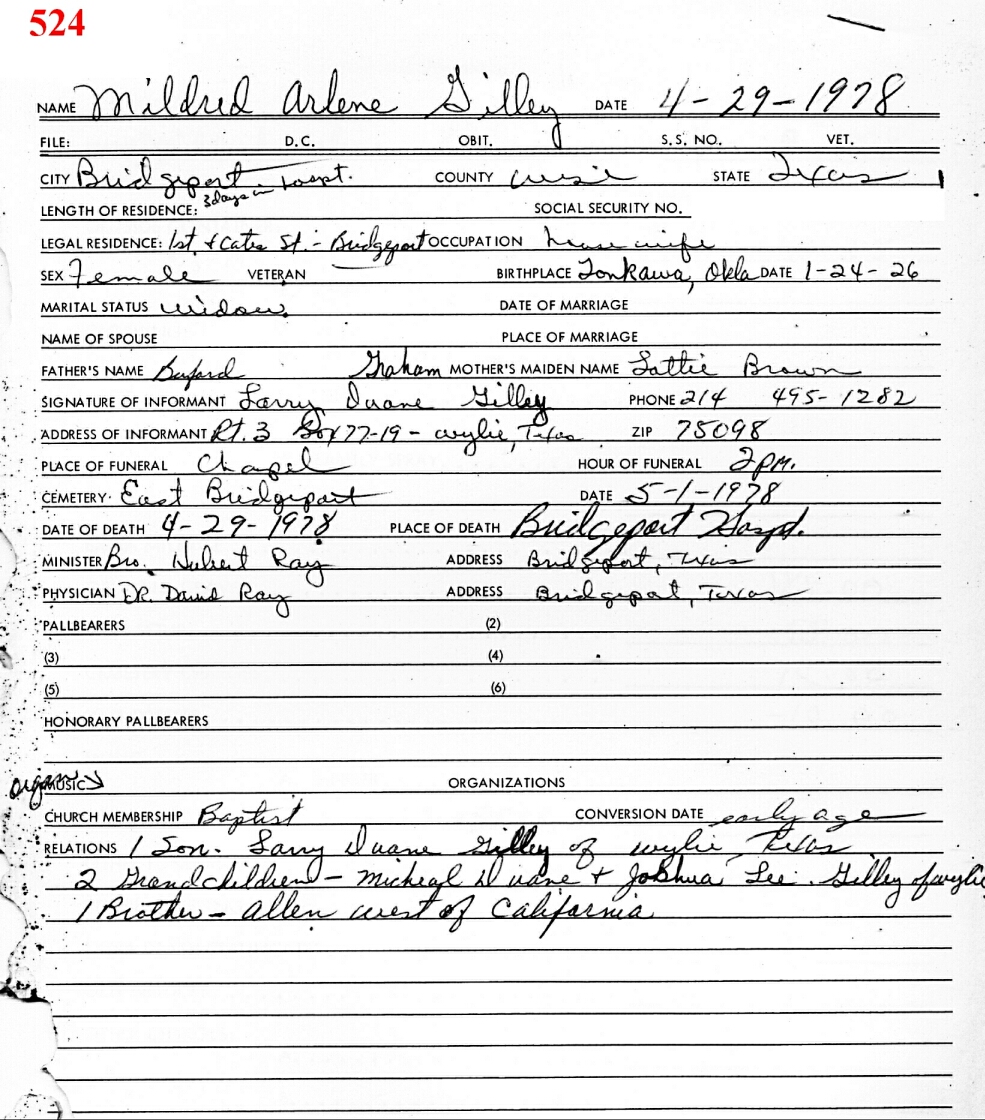 524
NAME Mildred Arlene Gilley DATE 4-29-1978
FILE: D.C. OBIT. S.S. NO. VET.
CITY Bridgeport Hospt. COUNTY Wise STATE Texas
LENGTH OF RESIDENCE: 3 days in SOCIAL SECURITY NO.
LEGAL RESIDENCE: 1st + Cates St. - Bridgeport OCCUPATION housewife
SEX Female VETERAN BIRTHPLACE Tonkawa, Okla DATE 1-24-26
MARITAL STATUS widow. DATE OF MARRIAGE
NAME OF SPOUSE PLACE OF MARRIAGE
FATHER'S NAME Buford Graham MOTHER'S MAIDEN NAME Lottie Brown
SIGNATURE OF INFORMANT Larry Duane Gilley PHONE 214 495-1282
ADDRESS OF INFORMANT Rt. 3 Box 77-19 - Wylie, Texas ZIP 75098
PLACE OF FUNERAL Chapel HOUR OF FUNERAL 2 pm.
CEMETERY. East Bridgeport DATE 5-1-1978
DATE OF DEATH 4-29-1978 PLACE OF DEATH Bridgeport Hospt.
MINISTER Bro. Hubert Ray ADDRESS Bridgeport, Texas
PHYSICIAN DR. David Ray ADDRESS Bridgeport, Texas
PALLBEARERS (2)
(3) (4)
(5) (6)
HONORARY PALLBEARERS
MUSIC ORGANIZATIONS
CHURCH MEMBERSHIP Baptist CONVERSION DATE early age
RELATIONS 1 Son. Larry Duane Gilley of Wylie, Texas
2 Grandchildren - Micheal Duane + Joshua Lee. Gilley of Wylie
1 Brother - Allen West of California